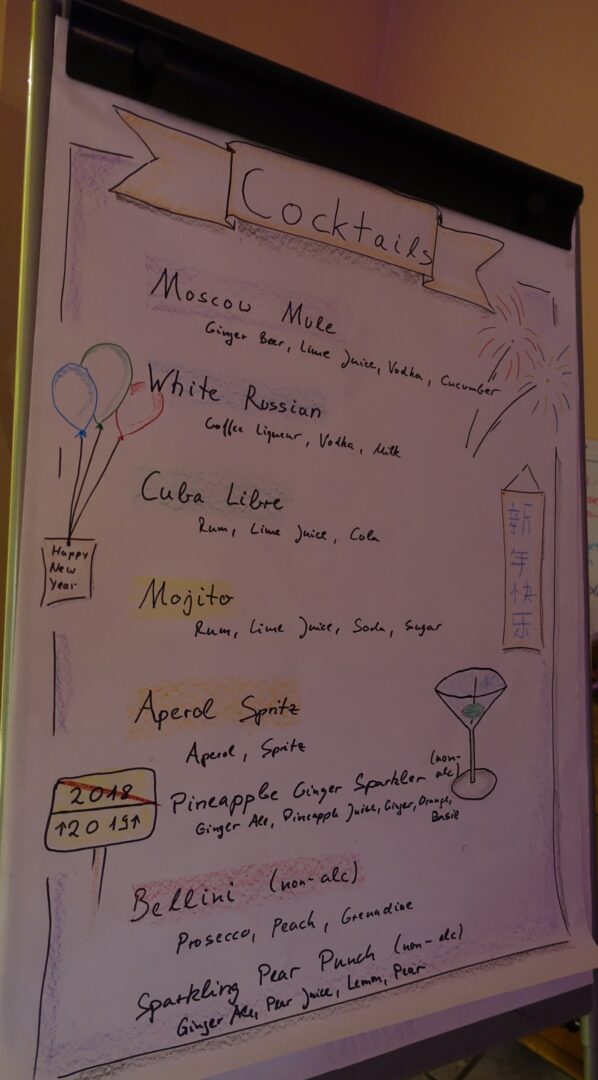 Cocktails
Moscow Mule
Ginger Beer, Lime Juice, Vodka, Cucumber
White Russian
Coffee Liqueur, Vodka, Milk
Cuba Libre
Rum, Lime Juice, Cola
Happy
New
Year
新年快乐
Mojito
Rum, Lime Juice, Soda, Sugar
Aperol Spritz
Aperol, Spritz
2018
↑2019↑
Pineapple Ginger Sparkler (non-alc)
Ginger Ale, Pineapple Juice, Ginger, Orange,
Basil
Bellini (non-alc)
Prosecco, Peach, Grenadine
Sparkling Pear Punch (non-alc)
Ginger Ale, Pear Juice, Lemon, Pear